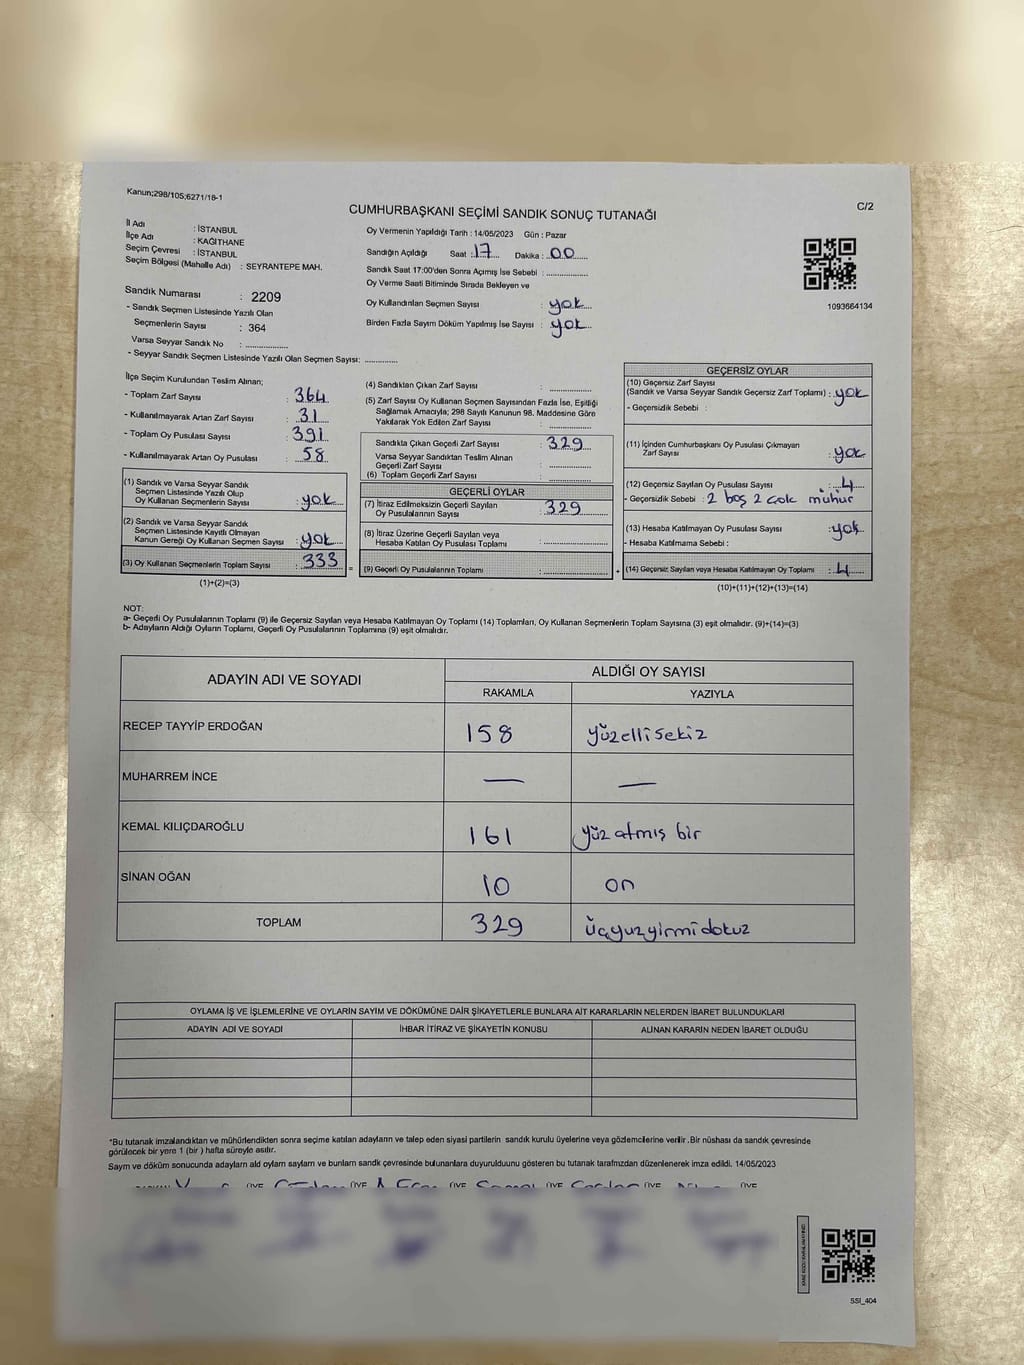 Kanun;298/105;6271/18-1
C/2
CUMHURBAŞKANI SEÇİMİ SANDIK SONUÇ TUTANAĞI
İl Adı : İSTANBUL
İlçe Adı : KAĞITHANE
Seçim Çevresi : İSTANBUL
Seçim Bölgesi (Mahalle Adı) : SEYRANTEPE MAH.
Sandık Numarası : 2209
- Sandık Seçmen Listesinde Yazılı Olan
Seçmenlerin Sayısı : 364
Varsa Seyyar Sandık No : ..............
- Seyyar Sandık Seçmen Listesinde Yazılı Olan Seçmen Sayısı: ............
Oy Vermenin Yapıldığı Tarih : 14/05/2023 Gün : Pazar
Sandığın Açıldığı Saat : 17 Dakika : 00
Sandık Saat 17:00'den Sonra Açımış İse Sebebi : ..............
Oy Verme Saati Bitiminde Sırada Bekleyen ve
Oy Kullandırılan Seçmen Sayısı : yok
Birden Fazla Sayım Döküm Yapılmış İse Sayısı : yok
1093664134
İlçe Seçim Kurulundan Teslim Alınan;
- Toplam Zarf Sayısı : 364
- Kullanılmayarak Artan Zarf Sayısı : 31
- Toplam Oy Pusulası Sayısı : 391
- Kullanılmayarak Artan Oy Pusulası : 58
(1) Sandık ve Varsa Seyyar Sandık
Seçmen Listesinde Yazılı Olup
Oy Kullanan Seçmenlerin Sayısı : yok
(2) Sandık ve Varsa Seyyar Sandık
Seçmen Listesinde Kayıtlı Olmayan
Kanun Gereği Oy Kullanan Seçmen Sayısı : yok
(3) Oy Kullanan Seçmenlerin Toplam Sayısı : 333 =
(1)+(2)=(3)
(4) Sandıktan Çıkan Zarf Sayısı : ..............
(5) Zarf Sayısı Oy Kullanan Seçmen Sayısından Fazla İse, Eşitliği
Sağlamak Amacıyla; 298 Sayılı Kanunun 98. Maddesine Göre
Yakılarak Yok Edilen Zarf Sayısı : ..............
Sandıkta Çıkan Geçerli Zarf Sayısı : 329
Varsa Seyyar Sandıktan Teslim Alınan
Geçerli Zarf Sayısı : ..............
(6) Toplam Geçerli Zarf Sayısı : ..............
GEÇERLİ OYLAR
(7) İtiraz Edilmeksizin Geçerli Sayılan
Oy Pusulalarının Sayısı : 329
(8) İtiraz Üzerine Geçerli Sayılan veya
Hesaba Katılan Oy Pusulası Toplamı : ..............
(9) Geçerli Oy Pusulalarının Toplamı : .............. +
GEÇERSİZ OYLAR
(10) Geçersiz Zarf Sayısı
(Sandık ve Varsa Seyyar Sandık Geçersiz Zarf Toplamı) : yok
- Geçersizlik Sebebi :
(11) İçinden Cumhurbaşkanı Oy Pusulası Çıkmayan
Zarf Sayısı : yok
(12) Geçersiz Sayılan Oy Pusulası Sayısı : 4
- Geçersizlik Sebebi : 2 boş 2 çok mühür
(13) Hesaba Katılmayan Oy Pusulası Sayısı : yok
- Hesaba Katılmama Sebebi :
(14) Geçersiz Sayılan veya Hesaba Katılmayan Oy Toplamı : 4
(10)+(11)+(12)+(13)=(14)
NOT:
a- Geçerli Oy Pusulalarının Toplamı (9) ile Geçersiz Sayılan veya Hesaba Katılmayan Oy Toplamı (14) Toplamları, Oy Kullanan Seçmenlerin Toplam Sayısına (3) eşit olmalıdır. (9)+(14)=(3)
b- Adayların Aldığı Oyların Toplamı, Geçerli Oy Pusulalarının Toplamına (9) eşit olmalıdır.
ADAYIN ADI VE SOYADI ALDIĞI OY SAYISI
RAKAMLA YAZIYLA
RECEP TAYYİP ERDOĞAN 158 yüzellisekiz
MUHARREM İNCE — —
KEMAL KILIÇDAROĞLU 161 yüz atmış bir
SİNAN OĞAN 10 on
TOPLAM 329 üçyuzyirmidokuz
OYLAMA İŞ VE İŞLEMLERİNE VE OYLARIN SAYIM VE DÖKÜMÜNE DAİR ŞİKAYETLERLE BUNLARA AİT KARARLARIN NELERDEN İBARET BULUNDUKLARI
ADAYIN ADI VE SOYADI İHBAR İTİRAZ VE ŞİKAYETİN KONUSU ALINAN KARARIN NEDEN İBARET OLDUĞU
*Bu tutanak imzalandıktan ve mühürlendikten sonra seçime katılan adayların ve talep eden siyasi partilerin sandık kurulu üyelerine veya gözlemcilerine verilir.Bir nüshası da sandık çevresinde
görülecek bir yere 1 (bir) hafta süreyle asılır.
Sayım ve döküm sonucunda adayların ald oyların sayların ve bunların sandk çevresinde bulunanlara duyurulduunu gösteren bu tutanak tarafmzdan düzenlenerek imza edildi. 14/05/2023
SSİ_404